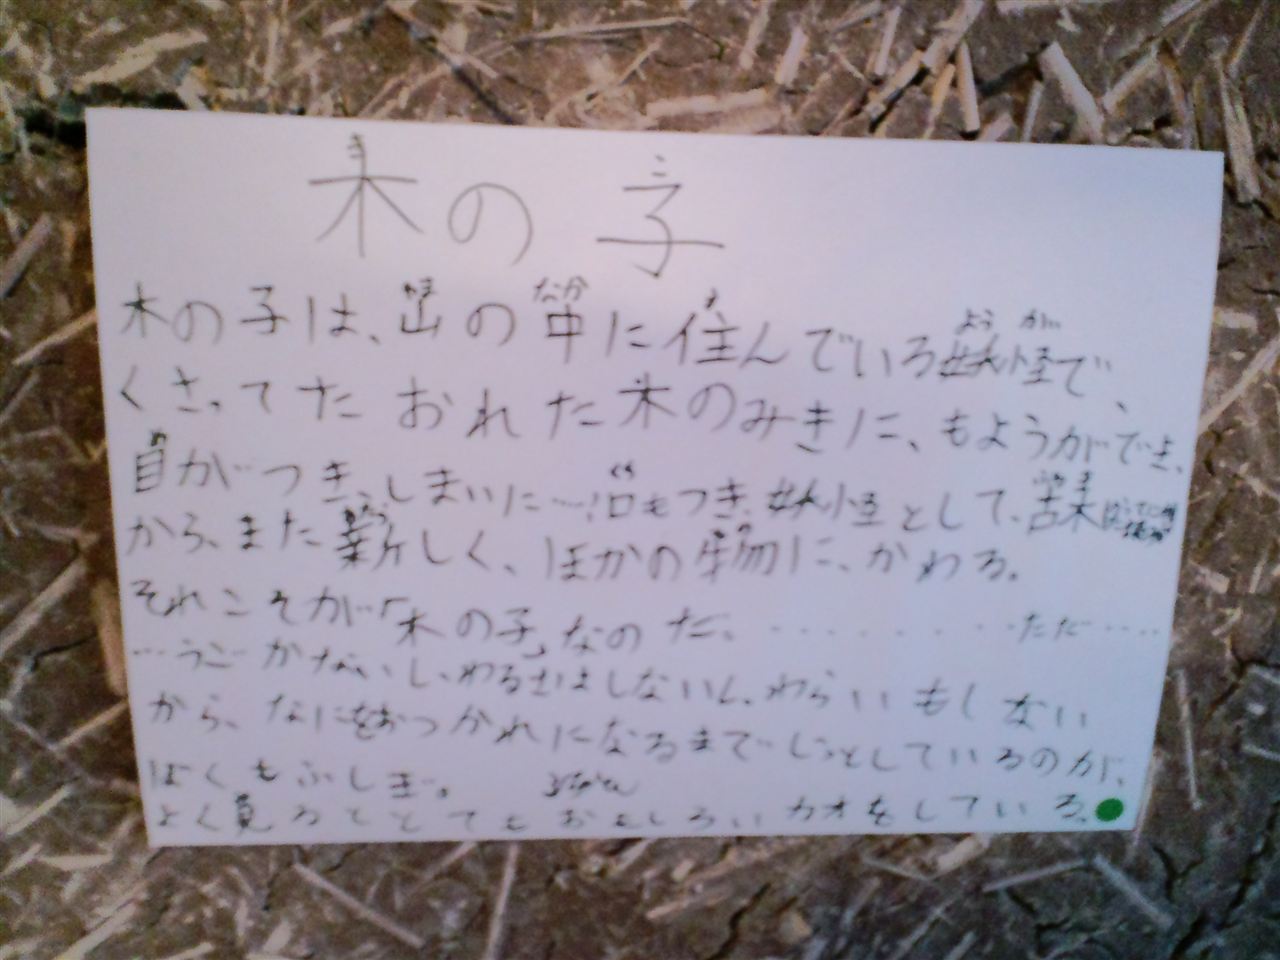 木の子
木の子は、山の中に住んでいる妖怪で、
くさってたおれた木のみきに、もようができ、
目がつき、しまいに…口もつき、妖怪として、
から、また新しく、ほかの物に、かわる。
それこそが「木の子」なのだ、‥‥‥‥ただ‥‥
…うごかないし、わるさはしないし、わらいもしない
から、なにをおつかれになるまでじっとしているのが、
ぼくもふしぎ。
よく見るととてもおもしろいカオをしている。